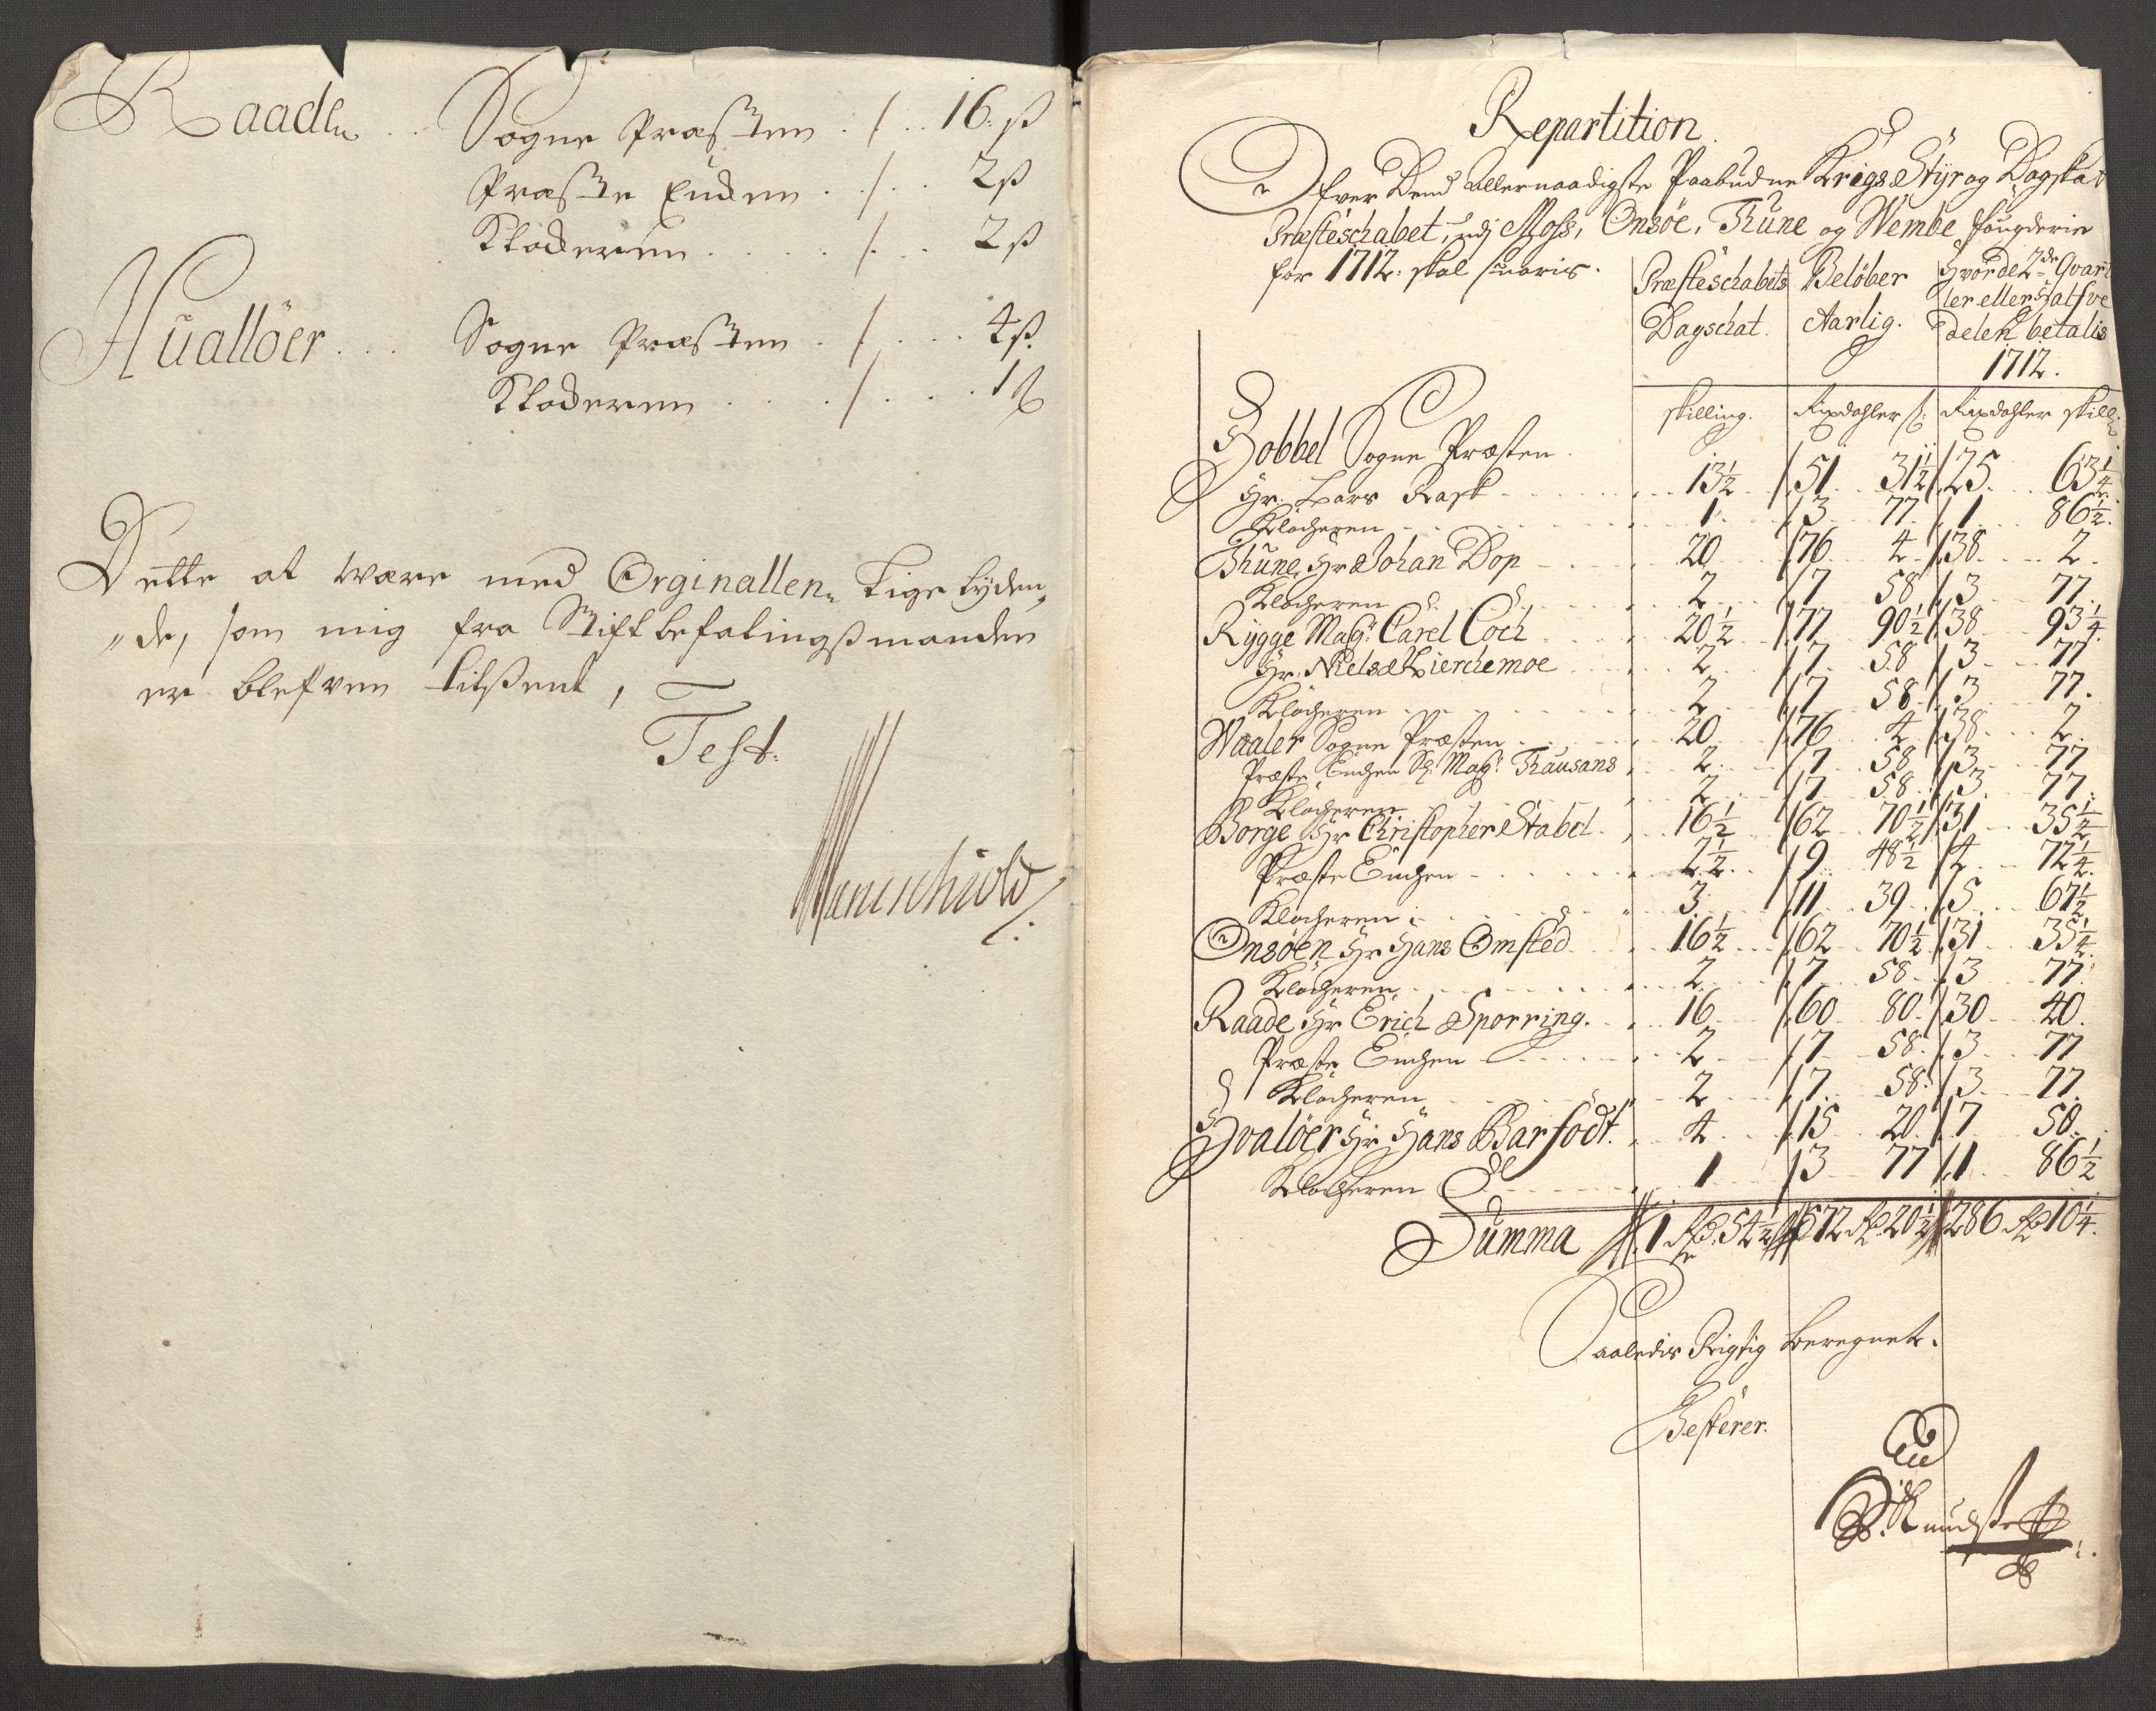 Raade .. Sogne Præsten . / .. 16 ß
Præste Enchen . . / . . 2 ß
Klocheren . . . . / . . 2 ß
Hualløer . . . Sogne Præsten . / . . . 4 ß.
Klocheren . . . / . . . 1 ß
Dette at være med Orginallen Lige lyden„
„de, som mig fra Stiftbefalingsmanden
er blefven tilsent,
Test.
Repartition
Ofver Dend Allernaadigste Paabudne Krigs Styr og Dagskat
Præsteschabet, udj Moss, Onsöe, Thune og Wembe fougderie
for 1712. skal svaris.
Præsteschabets Dagschat. | Belöber Aarlig. | Hvor de 2de Qvarter eller Halfve delen betalis 1712.
skilling. | Rixdahler ß | Rixdahler skill:
Hobbel Sogne Præsten.
Hr. Lars Rask . . . 13½ /51 31½ /25. 63¼.
Klocheren . . . 1 /3 77 /1 86½.
Thune, Hr Johan Dop . . . 20 /76 4 /38 2.
Klocheren . . . 2 /7 58 /3 77.
Rygge Magr. Carel Coch . . . 20½ /77 90½ /38 93¼.
Hr. Niels Kierchemoe . . . 2 /7 58 /3 77
Klocheren . . . 2 /7 58 /3 77.
Waaler Sogne Præsten . . . 20 /76 4 /38 2.
Præste Enchen Sl. Magr. Thausans . 2 /7 58 /3 77
Klocheren . . . 2 /7 58 /3. 77.
Borge Hr Christopher Stabel . . 16½ /62 70½ /31 35¼
Præste Enchen . . . 2½ /9 48½ /4 72¼.
Klocheren . . . 3 /11 39 /5 67½
Onsöen Hr Hans Omsted . . . 16½ /62 70½ /31 35¼
Klocheren . . . 2 /7 58 /3 77
Raade Hr Erich Sporring . . . 16 /60 80 /30 40.
Præste Enchen . . . 2 /7 58 /3 77
Klocheren . . . 2 /7 58 /3 77.
Hvalöer Hr Hans Barfodt . . 4 /15 20 /7 58.
Klocheren . . . 1 /3 77 /1 86½
Summa 1 Rd 54½ 572 Rd 20½ 286 Rd 10¼.
Saaledis Rigtig beregnet.
Testerer.